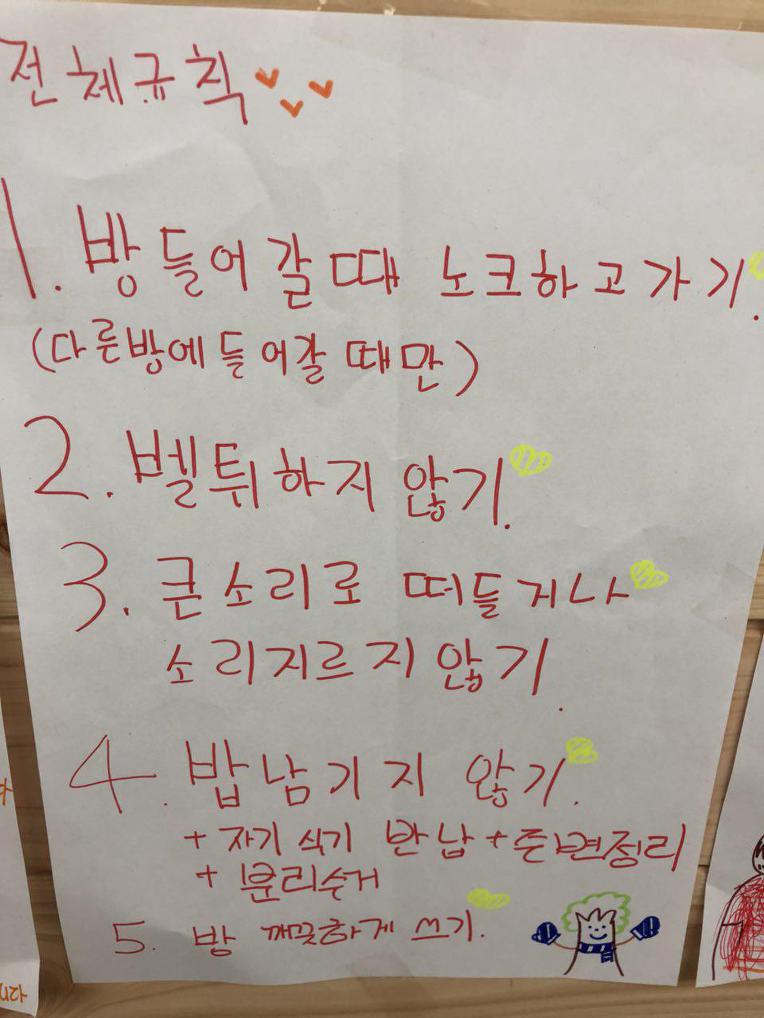 전체규칙
1. 방 들어갈때 노크하고가기.
(다른방에 들어갈 때만)
2. 벨튀하지 않기.
3. 큰소리로 떠들지나
소리지르지 않기.
4. 밥남기지 않기.
+ 자기 식기 반납 + 주변정리
+ 분리수거
5. 방 깨끗하게 쓰기.